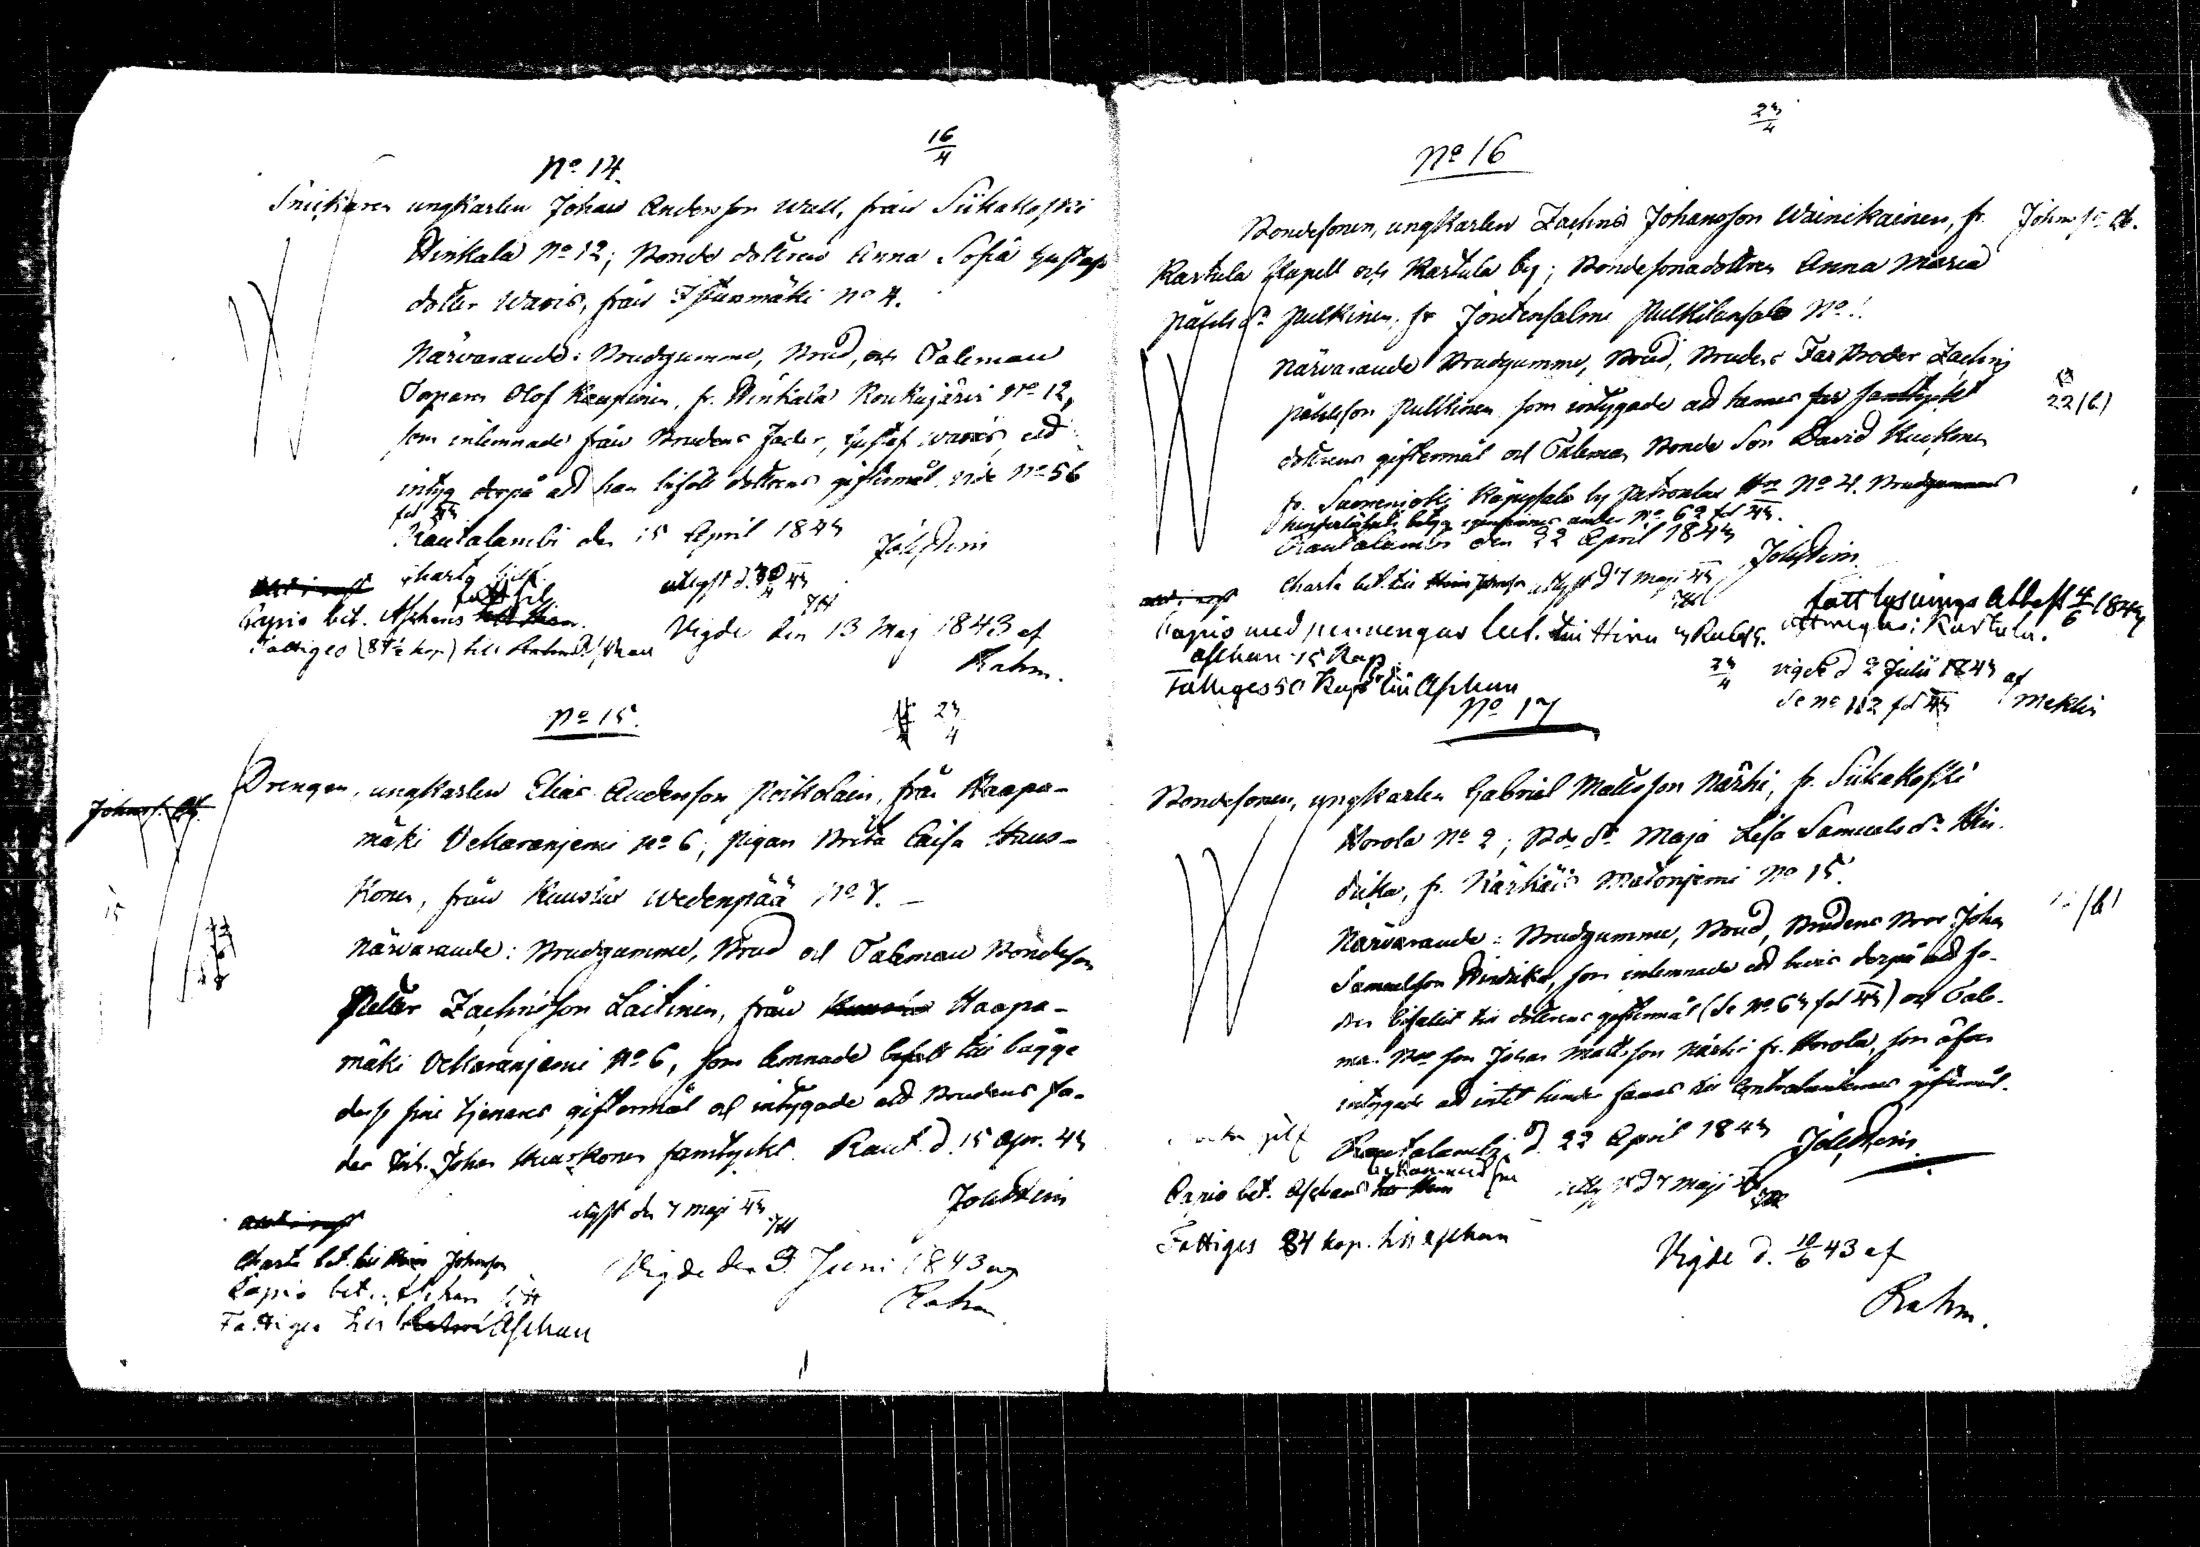 16/4
No 14.
Snickaren ungkarlen Johan Andersson Wall, från Siikakoski
Hinkala No 12; Bonde dottren Anna Sofia Gustafs
dotter Waris, från Istunmäki No 4.
Närvarande: Brudgumme, Brud, och Taleman
Torparen Olof Kauppinen, fr. Hinkala Koukujärvi No 12,
som inlemnade från Brudens Fader, Gustaf Waris, ett
intyg derpå att han bifallt dottrens giftermål, vide No 56
fol 43
Rautalambi den 15 April 1843 Joh. Stein
Charta sjelf. utlyst d. 30/4 43
Capio bet. Aschans
Fattiges (84½ kop) till Aschan
Vigde den 13 Maj 1843 af
Rahm.
No 15. 23/4
Johns. Ab.
Drengen, ungkarlen Elias Andersson Poikolain, från Haapa-
mäki Vellaranjemi No 6; pigan Brita Caisa Huus-
konen, från Kuusiu Wedenpää No 7. –
Närvarande: Brudgumme, Brud och Taleman Bondeson
Petter Zachrisson Laitinen, från Haapa-
mäki Vellaranjemi No 6, som lemnade bifall till bägge
dess sine tjenares giftermål och intygade att Brudens fa-
der Inh. Johan Huuskonen samtyckt. Raut. d. 15 Apr. 43
Joh Stein
utlyst den 7 maji 43
Charta bet. till Johnsson
Capio bet. Aschan
Fattiges till Aschan
Vigde den 9. Juni 1843 af
Rahm.
23/4
No 16
Bondesonen, ungkarlen Zachris Johansson Wainikainen, fr. Johns. Ab.
Karttula Kapell och Karttula by; Bondesonadottren Anna Maria
Påhlsdr Pulkinen, fr Jordensalmi Pulkilansalo No 1.
Närvarande Brudgumme, Brud, Brudens Far Broder Zachris
Påhlsson Pulkinen som intygade att hennes far samtyckt
22 (b)
dottrens giftermål och Taleman Bonde Son David Kuckonen
fr. Suonenjoki Käpysalo by No 4.
betyg under No 62 fol 43.
Rautalambi den 22 April 1843 Joh Stein
Charta bet. till Johnson utlyst d 7 maji 43
fått lysnings Attest 4/6 1843
Capio med penningar bet. till Hirn 3 Rub.
att vigas i Karttula.
Aschan 15 Kop
Fattiges 50 Kop till Aschan
23/4
vigde d 2 Julii 1843 af
Se No 112 fol 43 Meklin
No 17
Bondesonen, ungkarlen Gabriel Mattsson Närhi, fr. Siikakoski
Horola No 2; Bde dr Maja Lisa Samuels dr Hin-
drika, fr. Kärkäis Matonjemi No 15.
Närvarande: Brudgumme, Brud, Brudens Bror Johan
Samuelsson Hindrika, som inlemnade ett bevis derpå att fa-
dren bifallit till dottrens giftermål (Se No 63 fol 43) och Tale-
man Bde son Johan Mattsson Närhi fr. Horola, som äfven
intygade att intet hinder fanns till Contrahenternes giftermål.
Rautalambi d. 22 April 1843 Joh Stein
Capio bet. Aschans
utlyst d 7 maji 43
Fattiges 84 kop. till Aschan
Vigde d. 10/6 43 af
Rahm.